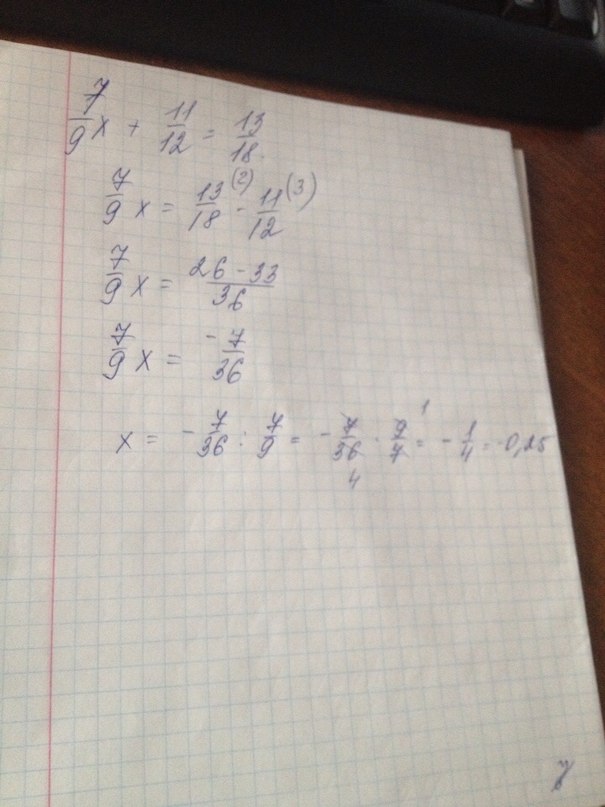 7/9 x + 11/12 = 13/18
7/9 x = 13/18 (2) - 11/12 (3)
7/9 x = 26 - 33/36
7/9 x = -7/36
x = -7/36 : 7/9 = -7/36 · 9/7 = -1/4 = -0,25
1
4